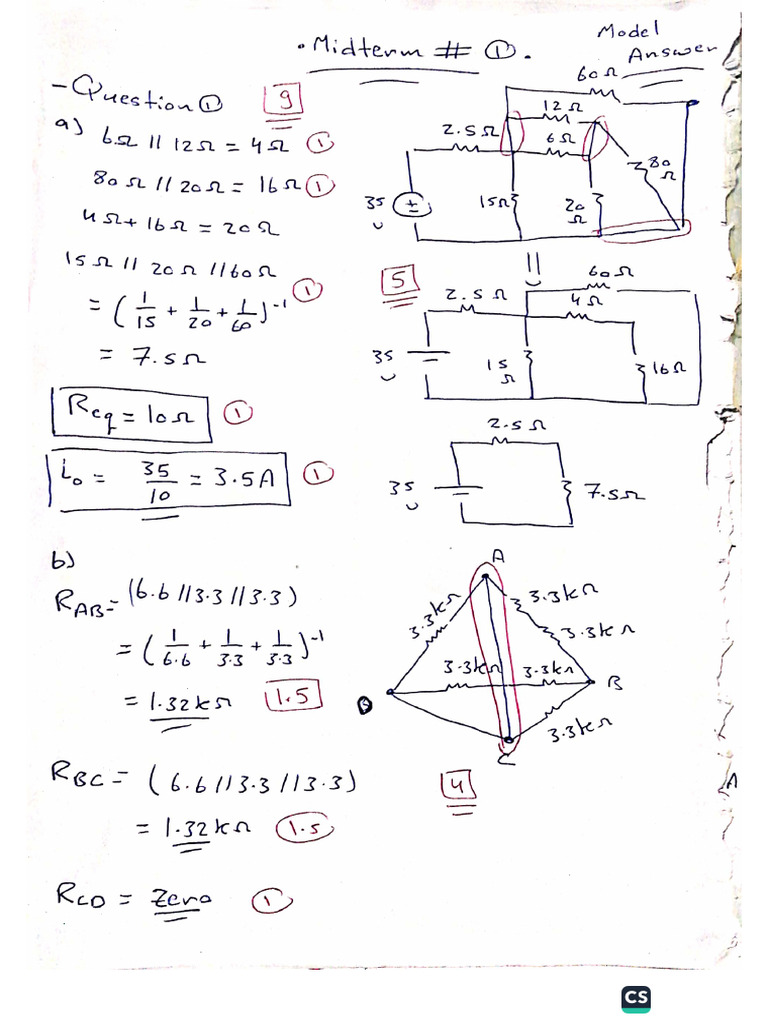 • Midterm # ①.
Model
Answer
- Question ① 9
a) 6Ω // 12Ω = 4Ω ①
80Ω // 20Ω = 16Ω ①
4Ω + 16Ω = 20Ω
15Ω // 20Ω // 60Ω
= (1/15 + 1/20 + 1/60)⁻¹ ①
= 7.5Ω
Req = 10Ω ①
i₀ = 35/10 = 3.5A ①
60Ω
12Ω
2.5Ω
6Ω
80
Ω
35
15Ω
20
Ω
5
60Ω
2.5Ω
4Ω
35
15
Ω
16Ω
2.5Ω
35
7.5Ω
b)
R_AB = (6.6 // 3.3 // 3.3)
= (1/6.6 + 1/3.3 + 1/3.3)⁻¹
= 1.32kΩ 1.5
A
3.3kΩ
3.3kΩ
3.3kΩ
3.3kΩ 3.3kΩ
B
3.3kΩ
C
R_BC = (6.6 // 3.3 // 3.3) 4
= 1.32kΩ 1.5
R_CD = Zero ①
A
CS